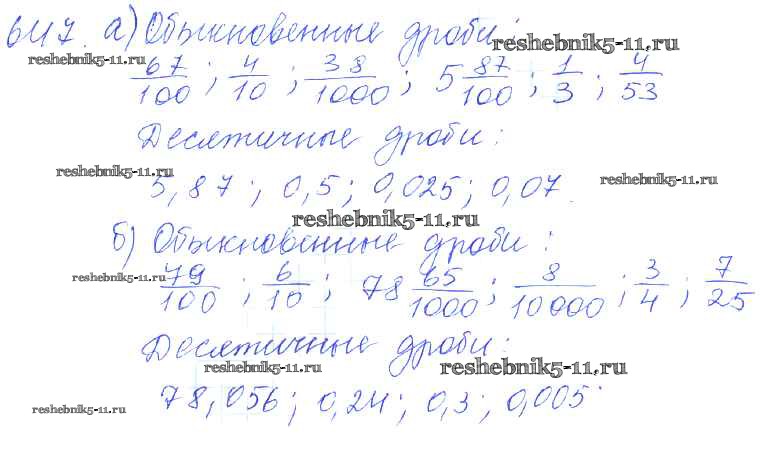 647. а) Обыкновенные дроби:
reshebnik5-11.ru
reshebnik5-11.ru
67/100 ; 4/10 ; 38/1000 ; 5 87/100 ; 1/3 ; 4/53
Десятичные дроби:
reshebnik5-11.ru
5,87 ; 0,5 ; 0,025 ; 0,07
reshebnik5-11.ru
reshebnik5-11.ru
б) Обыкновенные дроби:
reshebnik5-11.ru
79/100 ; 6/10 ; 78 65/1000 ; 8/10000 ; 3/4 ; 7/25
Десятичные дроби:
reshebnik5-11.ru
reshebnik5-11.ru
78,056 ; 0,24 ; 0,3 ; 0,005
reshebnik5-11.ru